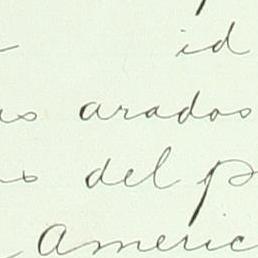 id
arados
del p
Americ